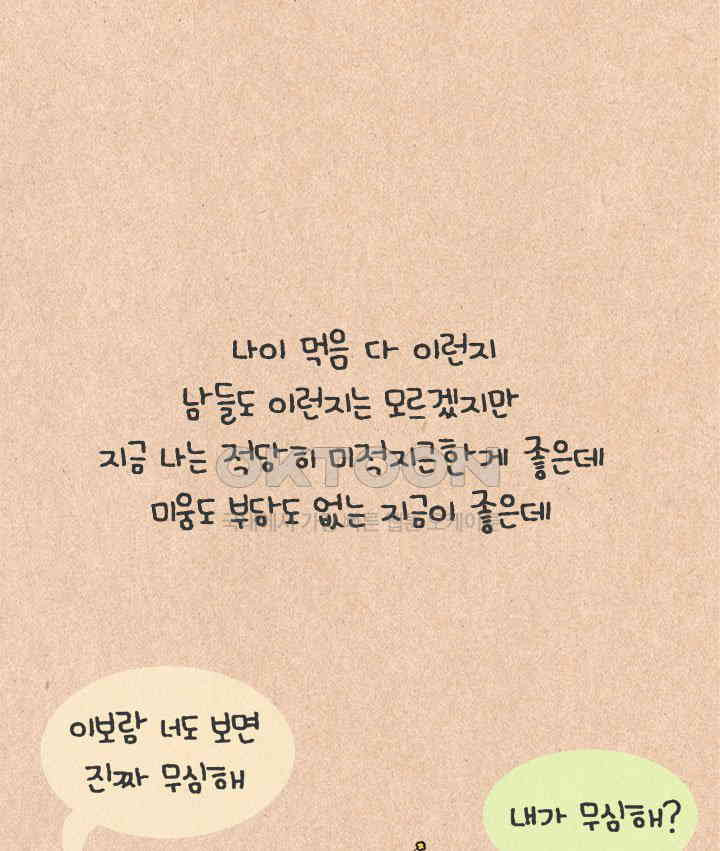 나이 먹음 다 이런지
남들도 이런지는 모르겠지만
지금 나는 적당히 미적지근한게 좋은데
OKTOON
미움도 부담도 없는 지금이 좋은데
이보람 너도 보면
진짜 무심해
내가 무심해?